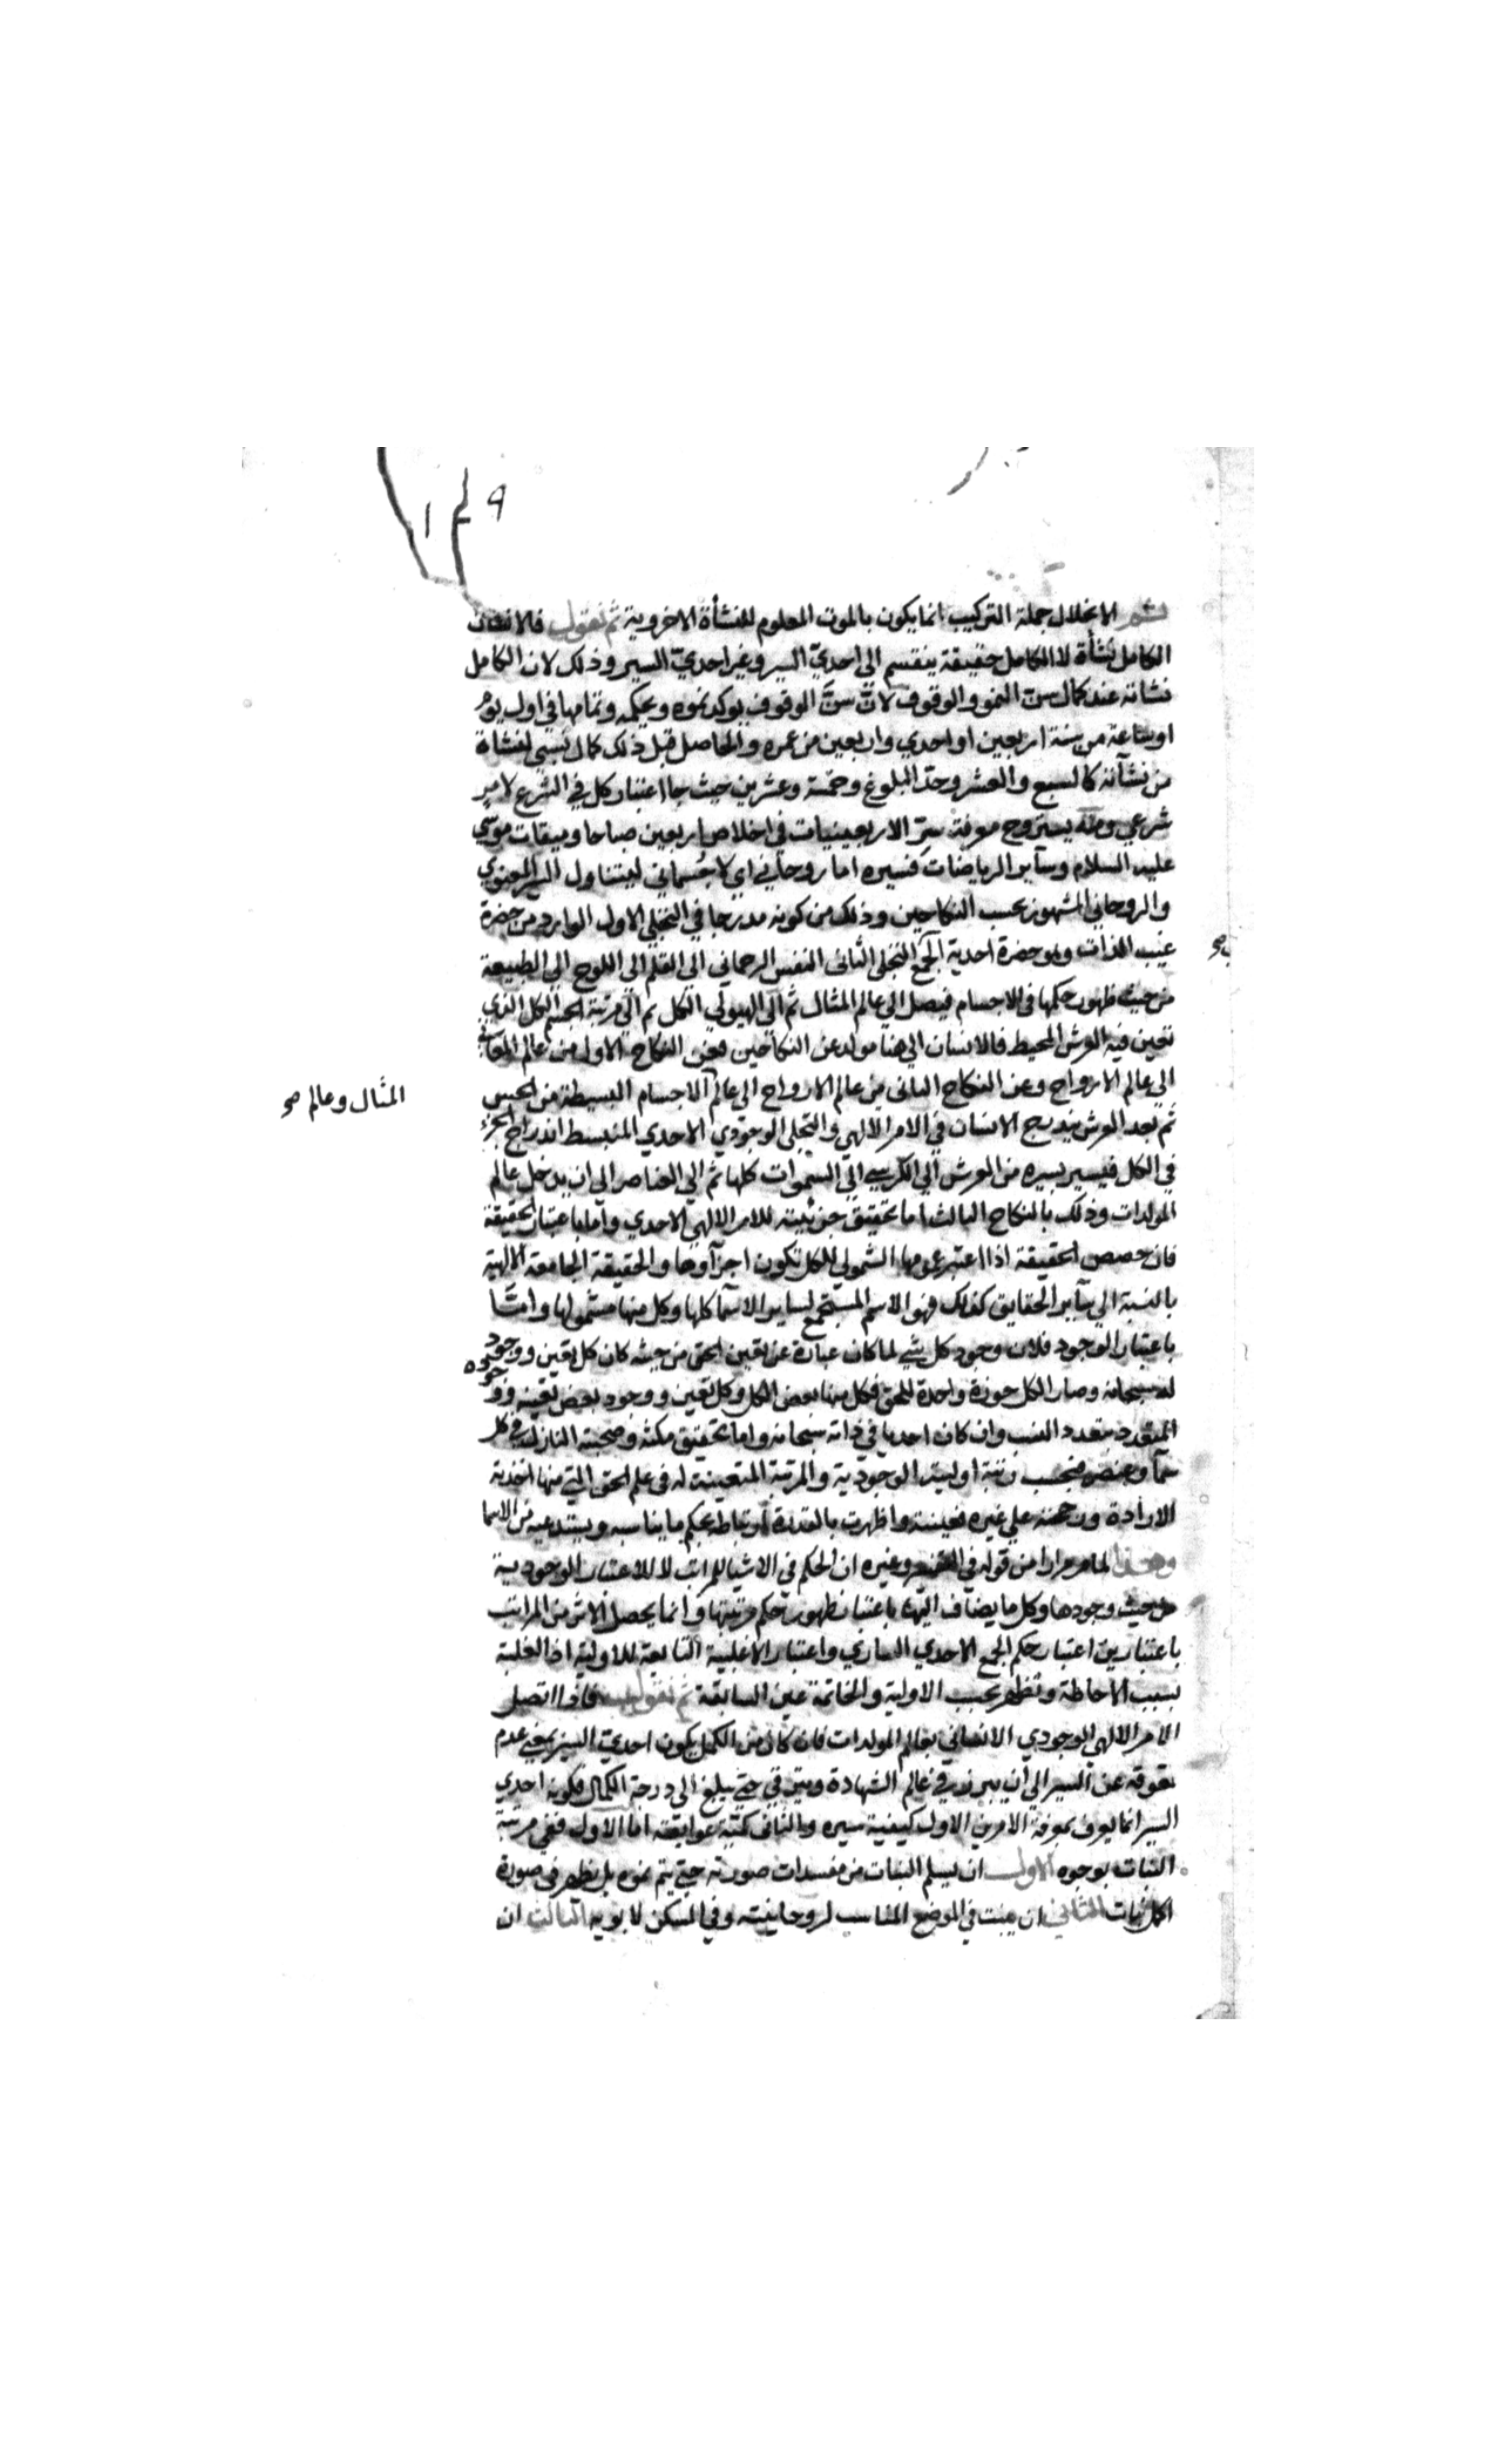 ثم الانحلال جملة التركيب انما يكون بالموت المعلوم للنشأة الاخروية ثم نقول فالانسان
الكامل نشأة لا الكامل حقيقة ينقسم الى احديّ السير وغير احديّ السير وذلك لان الكامل
نشاته عند كمال سن النمو والوقوف لانّ سنّ الوقوف يوكد نموه ويحكمه وتمامها في اول يوم
او ساعة من سنة اربعين او احدي واربعين من عمره والحاصل قبل ذلك كمال نسبى لنشأة
من نشآته كالسبع والعشر وحدّ البلوغ وخمسة وعشرين حيث جا اعتبار كل في الشرع لامر
شرعي ومنه يستروح معرفة سرّ الاربعينيات في اخلاص اربعين صباحا وميقات موسى
عليه السلام وسآير الرياضات فسيره اما روحاني اي لا جُسماني ليتناول السير المعنوي
والروحاني المشهور بحسب النكاحين وذلك من كونه مدرجا في التجلي الاول الوارد من حضرة
غيب الذات وهو حضرة احدية الجمع التجلى الثانى النفس الرحماني الى القلم الى اللوح الى الطبيعة
من حيث ظهور حكمها في الاجسام فيصل الي عالم المثال ثم الى الهيولى الكل ثم الى مرتبة الجسم الكل الذي
تعين فيه العرش المحيط فالانسان الى هنا مولد عن النكاحين فعن النكاح الاول من عالم المعاني
الي عالم الارواح وعن النكاح الثانى من عالم الارواح الى عالم الاجسام البسيطة من الحبس
المثال وعالم صح
ثم بعد العرش يندرج الانسان في الامر الالهي والتجلى الوجودي الاحدي المنبسط اندراج الجزء
في الكل فيسير بسيره من العرش الي الكرسي الى السموات كلها ثم الى العناصر الى ان يدخل عالم
المولدات وذلك بالنكاح الثالث اما تحقيق جزئيته للامر الالهي الاحدي واما باعتبار الحقيقة
فان حصص الحقيقة اذا اعتبر عمومها الشمولي للكل تكون اجزآوها والحقيقة الجامعة الالهية
بالنسبة الي سآير الحقايق كذلك فهو الاسم المستجمع لساير الاسمآ كلها وكل منها مشمولها وامّا
باعتبار الوجود فلان وجود كل شي لما كان عبارة عن تعين الحق من حيثه كان كل تعين ووجود
له سبحانه وصار الكل صورة واحدة للحق فكل منها بعض الكل وكل تعين ووجود بعض تعينه ووجوده
المتعدد بتعدد النسب وان كان احديا في ذاته سبحانه واما تحقيق مكثه وصحبته النازل في كل
سمآ وعنصر فبحسب رتبة اوليته الوجودية والمرتبة المتعينة له في علم الحق التي منها اتخذته
الارادة ورجحته علي غيره فعينته واظهرت بالقدرة ارتباطه بحكم ما يناسبه ويستدعيه من الاسما
وهذا لما مر مرارا من قوله في التفسير وغيره ان الحكم في الاشيا للمراتب لا للاعتبار الوجودية
من حيث وجودها وكل ما يضاف اليها باعتبار ظهور حكم مرتبتها وانما يحصل الاثر من المراتب
باعتبارين اعتبار حكم الجمع الاحدي الساري واعتبار الاغلبية التابعة للاولية اذ الغلبة
بسبب الاحاطة وتظهر بحسب الاولية والخاتمة عين السابقة ثم نقول فاذا اتصل
الامر الالهي الوجودي الانساني بعالم المولدات فان كان من الكمل يكون احديّ السير بمعنى عدم
تعوقه عن السير الي أن يبرز في عالم الشهادة ويترقي حتى يبلغ الى درجة الكمال فكونه احدي
السير انما يعرف بمعرفة الامرين الاول كيفية سيره والثانى كمية عوايقه اما الاول ففي مرتبة
النبات بوجوه الاول ان يسلم النبات من مفسدات صورته حتى يتم نموه بل يظهر في صورة
اكمل نبات الثاني ان ينبت في الموضع المناسب لروحانيته وفي المسكن لابويه الثالث ان